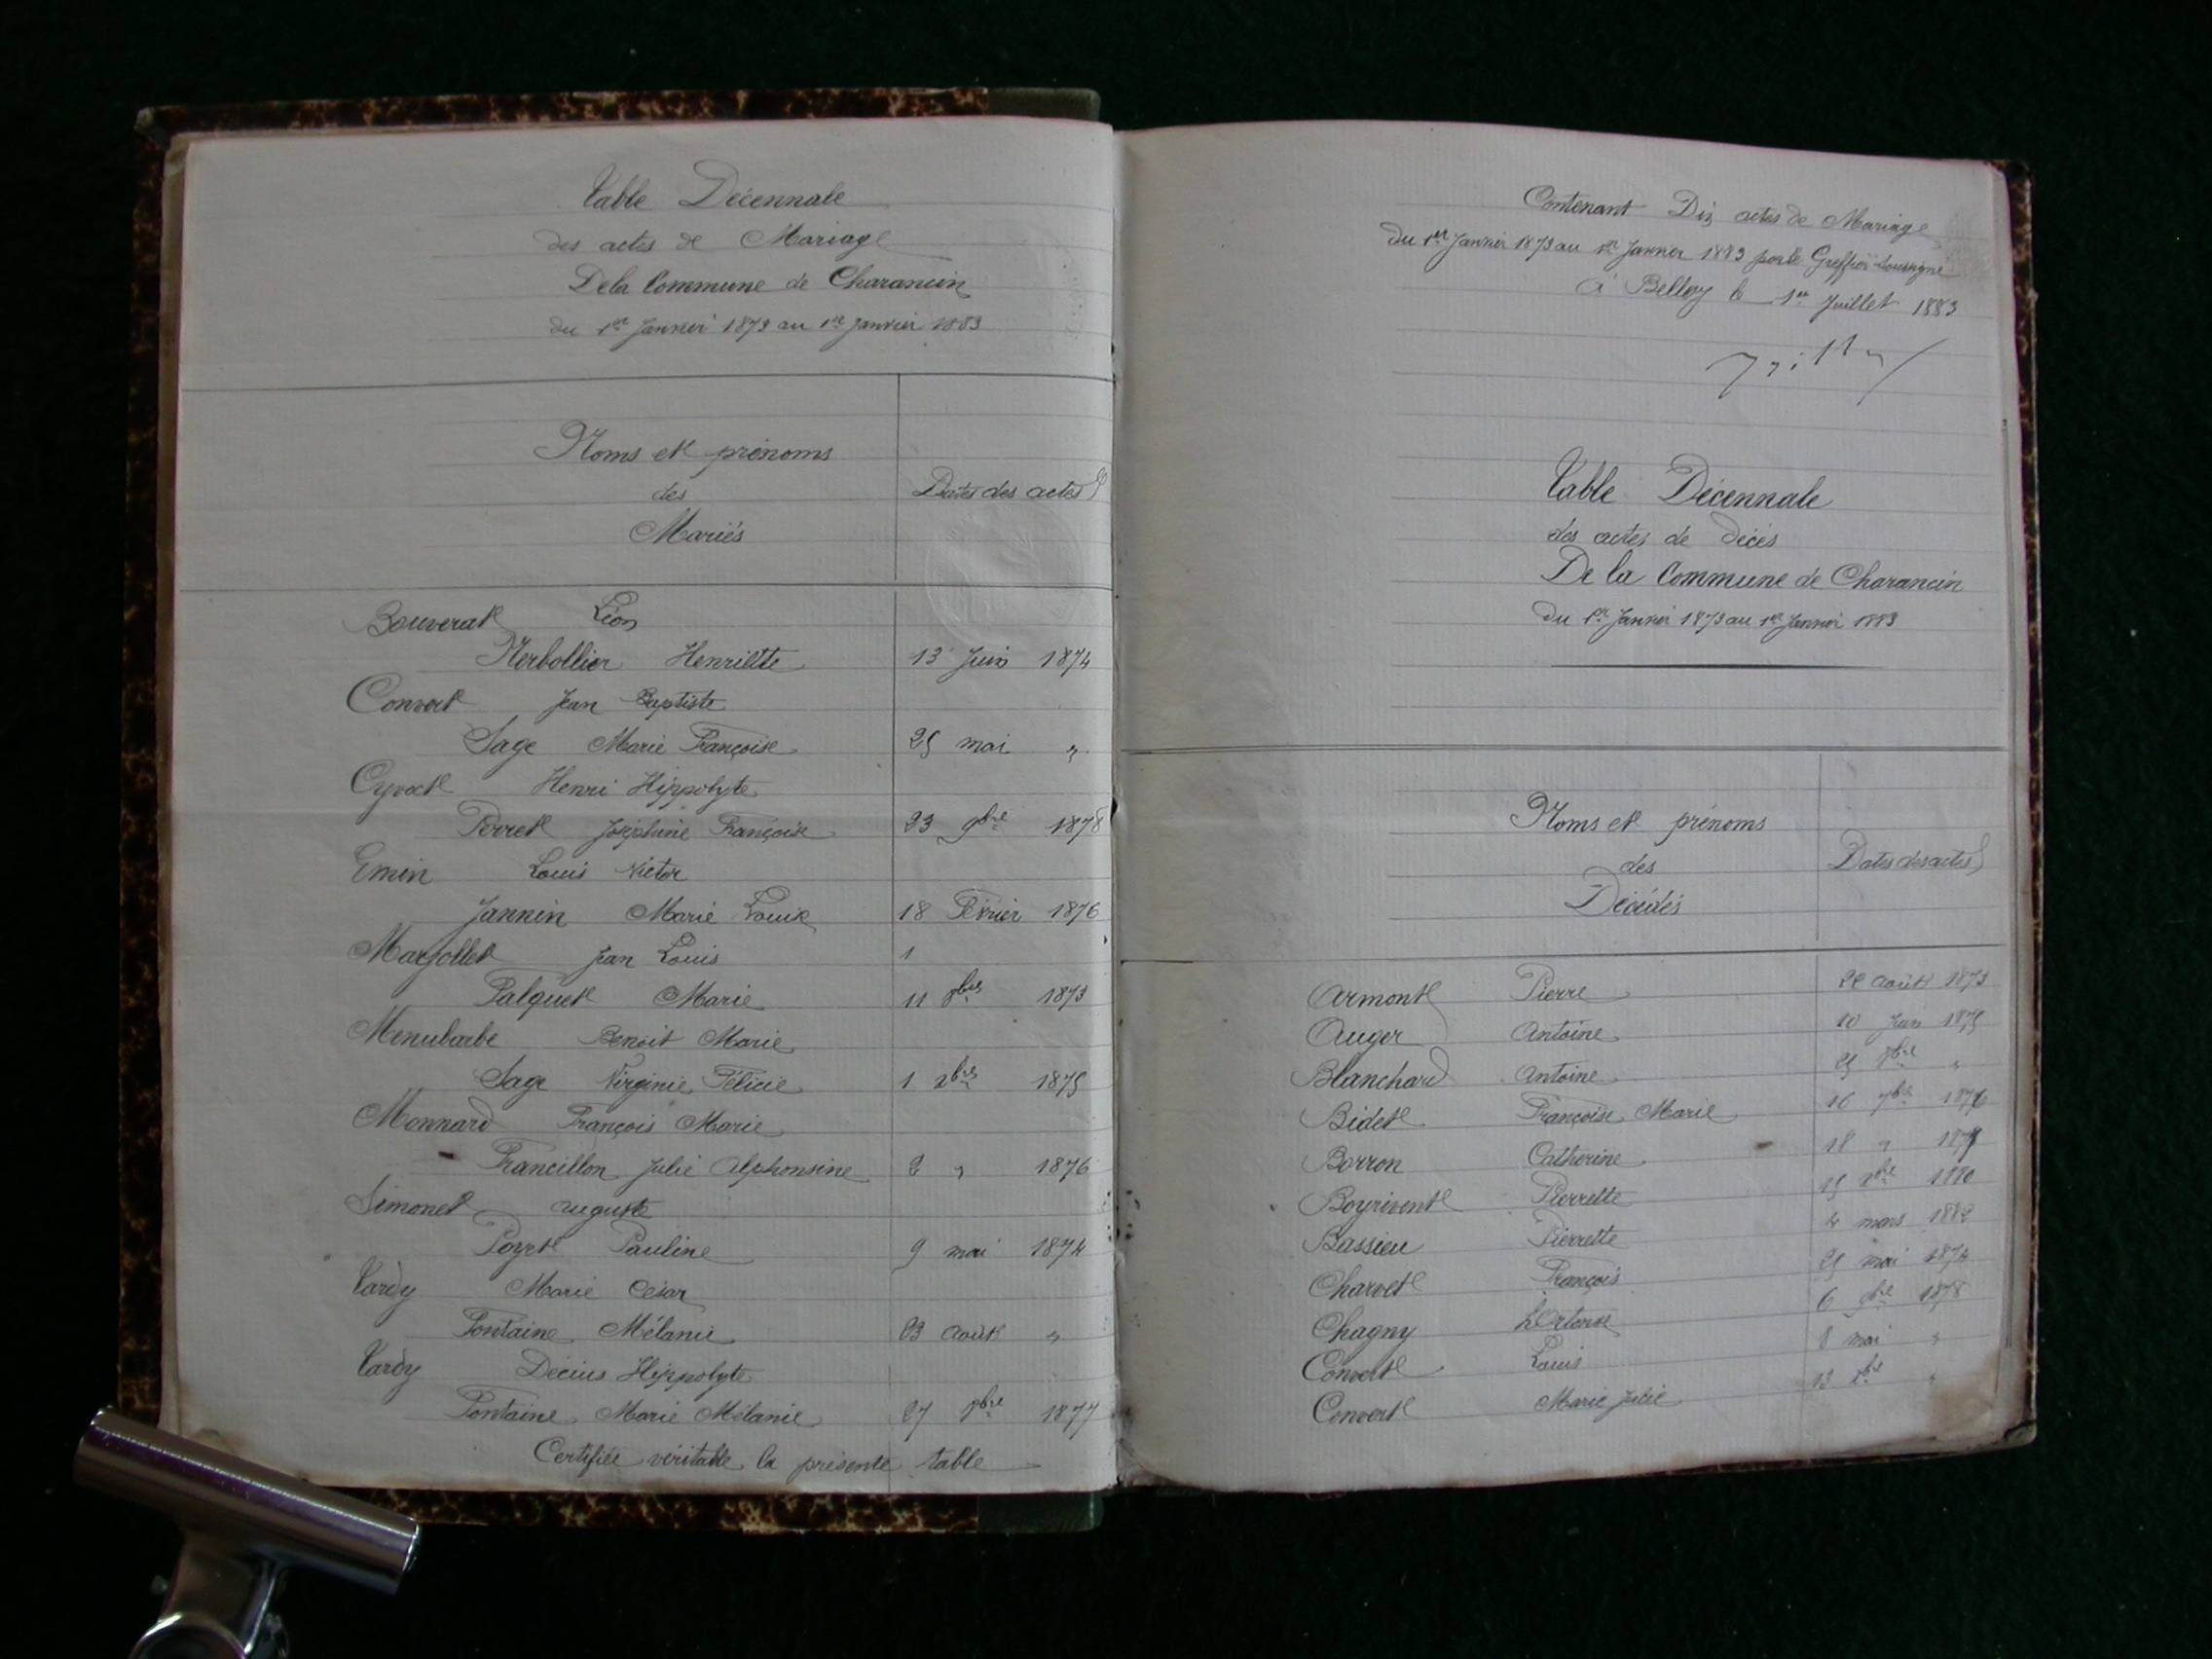 Table Décennale
des actes de Mariage
De la Commune de Charancin
du 1er Janvier 1873 au 1er Janvier 1883
Noms et prénoms
des
Mariés
Dates des actes
Bouverat Léon
Herbollier Henriette 13 Juin 1874
Convert Jean Baptiste
Sage Marie Françoise 25 mai "
Cyvoct Henri Hippolyte
Perret Joséphine Françoise 23 9bre 1878
Emin Louis Victor
Jannin Marie Louise 18 Février 1876
Marjollet Jean Louis
Palquet Marie 11 8bre 1873
Menubarbe Benoit Marie
Sage Virginie Félicie 1 xbre 1875
Monnard François Marie
Francillon Julie Alphonsine 2 " 1876
Simonet Auguste
Poyet Pauline 9 mai 1874
Tardy Marie César
Fontaine Mélanie 23 août "
Tardy Décius Hippolyte
Fontaine Marie Mélanie 27 8bre 1877
Certifiée véritable la présente table
Contenant Dix actes de Mariage
Du 1er Janvier 1873 au 1er Janvier 1883 par le Greffier soussigné
à Belley le 1er Juillet 1883
Table Décennale
des actes de Décès
De la Commune de Charancin
Du 1er Janvier 1873 au 1er Janvier 1883
Noms et prénoms
des
Décédés
Dates des actes
Armont Pierre 22 août 1873
Auger Antoine 10 Juin 1875
Blanchard Antoine 25 8bre "
Bidet Françoise Marie 16 7bre 1876
Borron Catherine 18 " 1879
Boyrivent Pierrette 15 xbre 1880
Bassieu Pierrette 4 mars 1882
Charvet François 25 mai 1874
Chagny hortense 6 9bre 1878
Convert Louis 8 mai "
Convert Marie Julie 13 xbre "